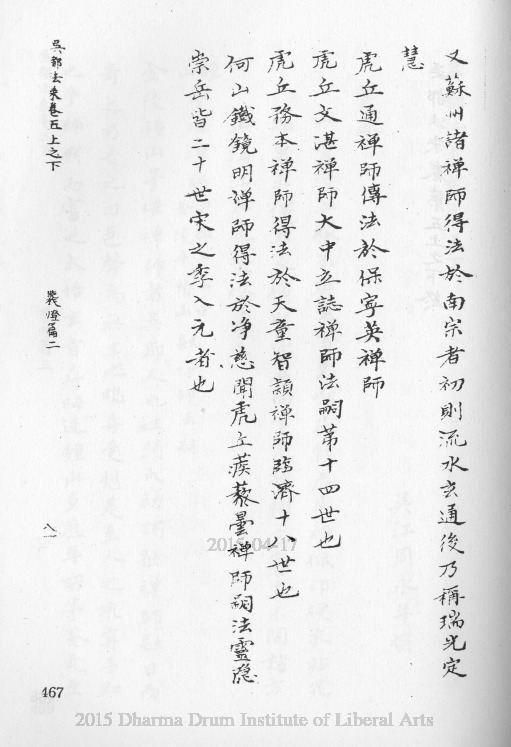 又蘇州諸禪師得法於南宗者初則流水玄通後乃稱瑞光定
慧
虎丘通禪師傳法於保寧英禪師
虎丘文湛禪師大中立誌禪師法嗣苐十四世也
虎丘務本禪師得法於天童智頴禪師臨濟十八世也
何山鐵鏡明禪師得法於净慈聞虎丘蒺藜曇禪師嗣法靈隱
崇岳皆二十世宋之季入元者也
吳都法乘卷五上之下
襲燈篇二
八一
467
2015-04-17
2015 Dharma Drum Institute of Liberal Arts